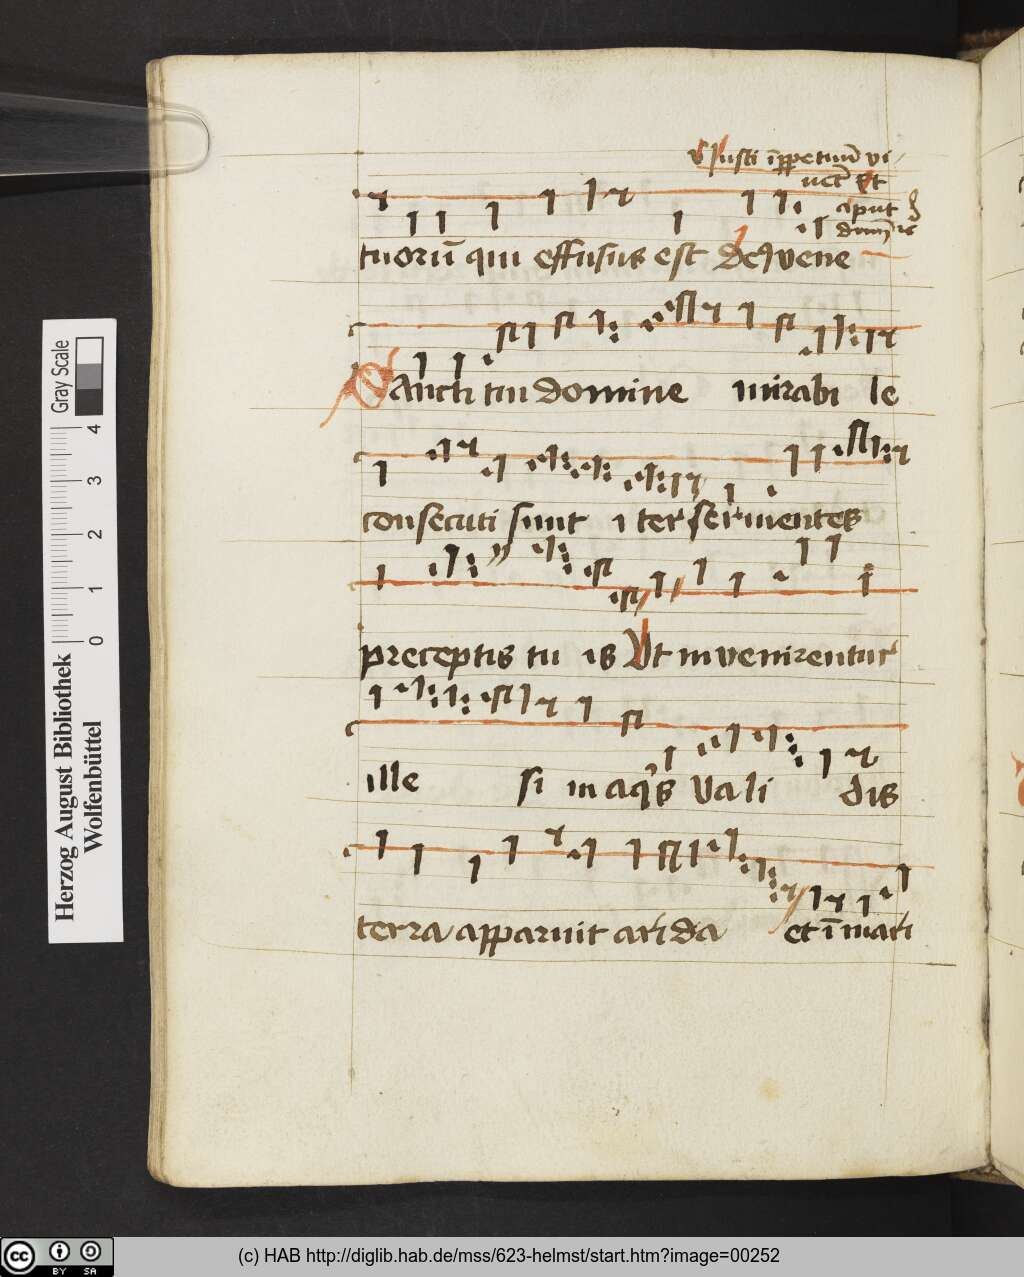 Justi īppetuū vi
uēt Et
aput
dnm̄
tuorū qui effusus est De Ivene
Sancti tui domine mirabi le
consecuti sunt i ter serviientes
preceptis tu is Ut invenirentur
ille si in aq's vali dis
terra apparuit arida et ī mari
Gray Scale
0 1 2 3 4
Herzog August Bibliothek
Wolfenbüttel
cc BY SA
(c) HAB http://diglib.hab.de/mss/623-helmst/start.htm?image=00252